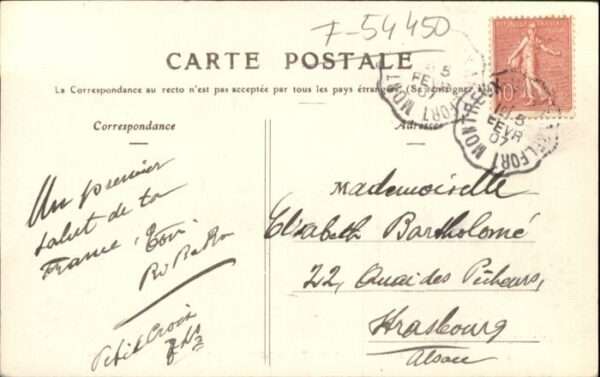 F-54450
CARTE POSTALE
La Correspondance au recto n'est pas acceptée par tous les pays étrangers (Se renseigner
Correspondance
Adresse
5
FEVR
07
MONTREUX
BELFORT
10
Un premier
salut de ta
France
Petit Croix
Mademoiselle
Elisabeth Bartholomé
22, Quai des Pêcheurs,
Strasbourg
Alsace